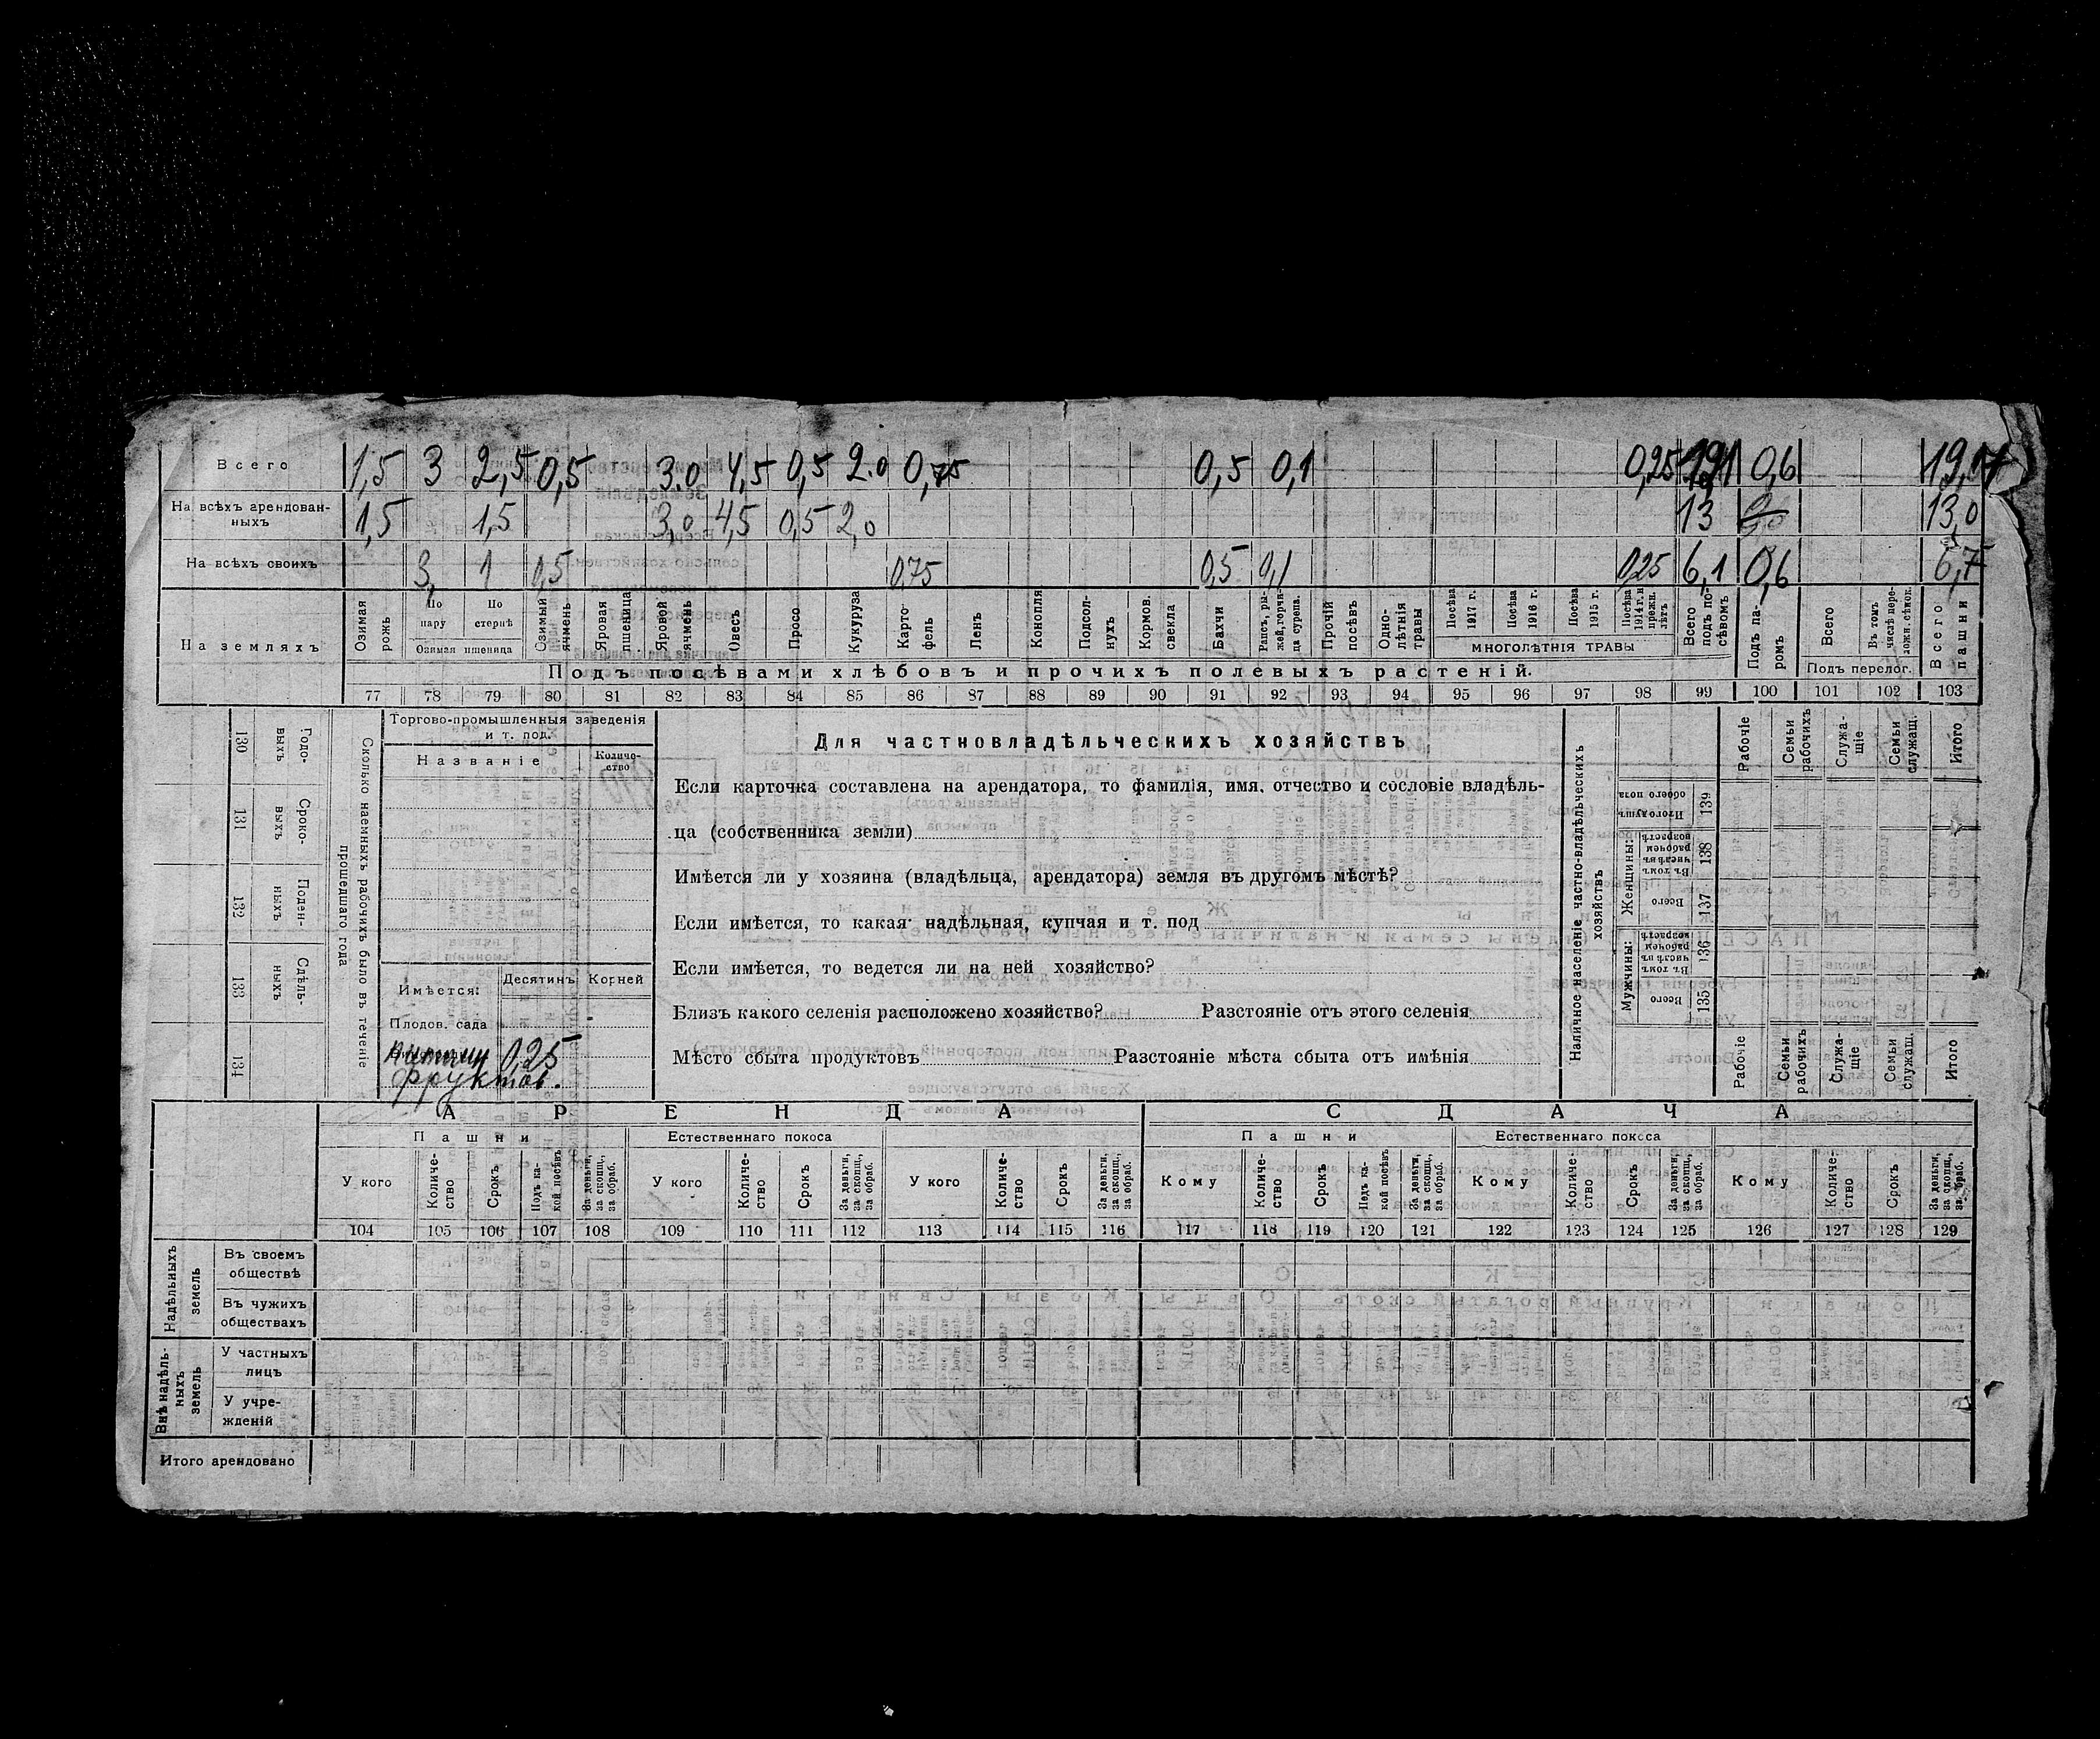 Всего 1,5 3 2,5 0,5 3.0 4,5 0,5 2.0 0,75 0,5 0,1 0,25 0,6
На всѣхъ арендован-
ныхъ 1,5 1,5 3,0 4,5 0,5 2,0 13 13,0
На всѣхъ своихъ 3, 1 0,5 0,75 0,5 0,1 0,25 6,1 0,6 6,7
На земляхъ
Озимая рожь
По пару
По стернѣ
Озимая пшеница
Озимый ячмень
Яровая пшеница
Яровой ячмень
Овесъ
Просо
Кукуруза
Карто-
фель
Ленъ
Конопля
Подсол-
нухъ
Кормов. свекла
Бахчи
Рапсъ, ры-
жей, горчи-
ца сурепа.
Прочій посѣвъ
Одно-
лѣтнія травы
Посѣва 1917 г.
Посѣва 1916 г.
Посѣва 1915 г.
Посѣва 1914 г. и прежн. лѣтъ
МНОГОЛѢТНІЯ ТРАВЫ
Всего подъ по-
сѣвомъ
Подъ па-
ромъ
Всего
Въ томъ числѣ пере-
ложн. сѣнок.
Подъ перелог.
Всего пашни
Подъ посѣвами хлѣбовъ и прочихъ полевыхъ растеній.
77 78 79 80 81 82 83 84 85 86 87 88 89 90 91 92 93 94 95 96 97 98 99 100 101 102 103
130 Годо-
выхъ
131 Сроко-
выхъ
132 Поден-
ныхъ
133 Сдѣль-
ныхъ
134
Сколько наемныхъ рабочихъ было въ теченіе
прошедшаго года
Торгово-промышленныя заведенія
и т. под.
Названіе
Количе-
ство
Имѣется:
Десятинъ
Корней
Плодов. сада
0,25
фруктов.
Для частновладѣльческихъ хозяйствъ
Если карточка составлена на арендатора, то фамилія, имя, отчество и сословіе владѣль-
ца (собственника земли)
Имѣется ли у хозяина (владѣльца, арендатора) земля въ другомъ мѣстѣ?
Если имѣется, то какая: надѣльная, купчая и т. под
Если имѣется, то ведется ли на ней хозяйство?
Близъ какого селенія расположено хозяйство? Разстояніе отъ этого селенія
Мѣсто сбыта продуктовъ Разстояніе мѣста сбыта отъ имѣнія
Наличное населеніе частно-владѣльческихъ
хозяйствъ
Рабочіе
Семьи рабочихъ
Служа-
щіе
Семьи служащ.
Итого
Итого душъ обоего пола 139
Женщины:
Въ томъ числѣ въ рабочем возрастѣ 138
Всего 137
Мужчины:
Въ томъ числѣ въ рабочем возрастѣ 136
Всего 135
Рабочіе
Семьи рабочихъ
Служа-
щіе
Семьи служащ.
Итого
АРЕНДА СДАЧА
Пашни Естественнаго покоса Пашни Естественнаго покоса
У кого
Количе-
ство
Срокъ
Подъ ка-
кой посѣвъ
За деньги, за скопщ., за обраб.
У кого
Количе-
ство
Срокъ
За деньги, за скопщ., за обраб.
У кого
Количе-
ство
Срокъ
За деньги, за скопщ., за обраб.
Кому
Количе-
ство
Срокъ
Подъ ка-
кой посѣвъ
За деньги, за скопщ., за обраб.
Кому
Количе-
ство
Срокъ
За деньги, за скопщ., за обраб.
Кому
Количе-
ство
Срокъ
За деньги, за скопщ., за обраб.
104 105 106 107 108 109 110 111 112 113 114 115 116 117 118 119 120 121 122 123 124 125 126 127 128 129
Надѣльныхъ
земель
Въ своемъ
обществѣ
Въ чужихъ
обществахъ
Внѣ надѣль-
ныхъ
земель
У частныхъ
лицъ
У учре-
жденій
Итого арендовано